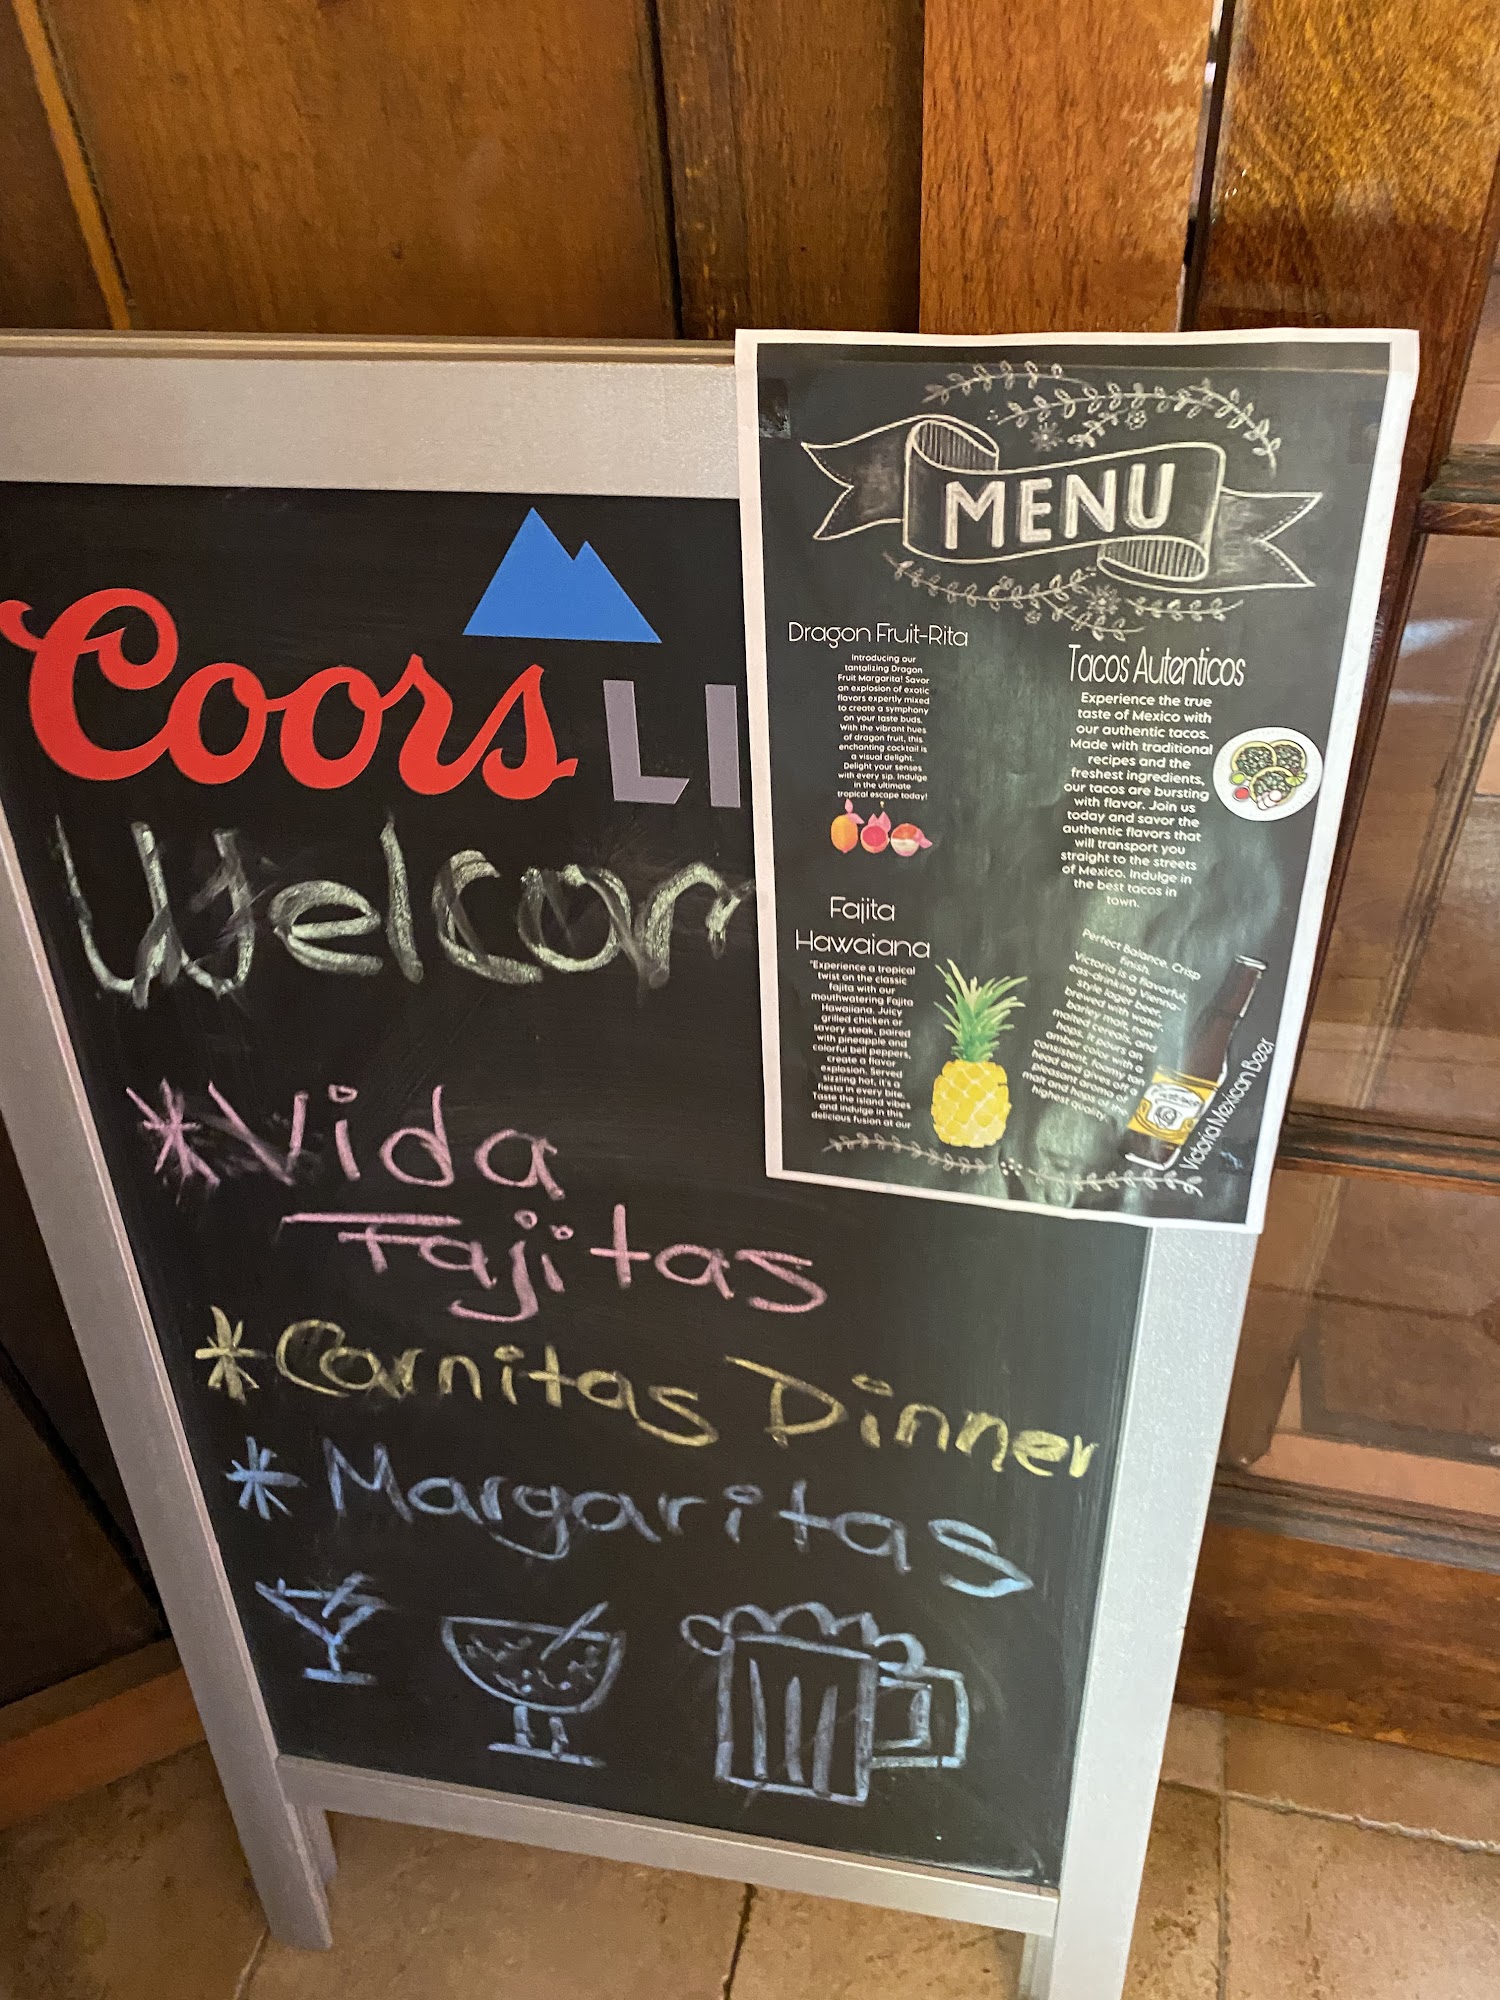 Coors LI
Welcom
*Vida
Fajitas
*Carnitas Dinner
*Margaritas
MENU
Dragon Fruit-Rita
Introducing our
tantalizing Dragon
Fruit Margarita! Savor
an explosion of exotic
flavors expertly mixed
to create a symphony
on your taste buds.
With the vibrant hues
of dragon fruit, this
enchanting cocktail is
a visual delight.
Delight your senses
with every sip. Indulge
in the ultimate
tropical escape today!
Fajita
Hawaiana
"Experience a tropical
twist on the classic
fajita with our
mouthwatering Fajita
Hawaiiana. Juicy
grilled chicken or
savory steak, paired
with pineapple and
colorful bell peppers,
create a flavor
explosion. Served
sizzling hot, it's a
fiesta in every bite.
Taste the island vibes
and indulge in this
delicious fusion at our
Tacos Autenticos
Experience the true
taste of Mexico with
our authentic tacos.
Made with traditional
recipes and the
freshest ingredients,
our tacos are bursting
with flavor. Join us
today and savor the
authentic flavors that
will transport you
straight to the streets
of Mexico. Indulge in
the best tacos in
town.
Perfect Balance. Crisp
finish.
Victoria is a flavorful,
eas-drinking Vienna-
style lager beer,
brewed with water,
barley malt, non
malted cereals, and
hops. It pours an
amber color with a
consistent, foamy tan
head and gives off a
pleasant aroma of
malt and hops of the
highest quality.
Victoria Mexican Beer